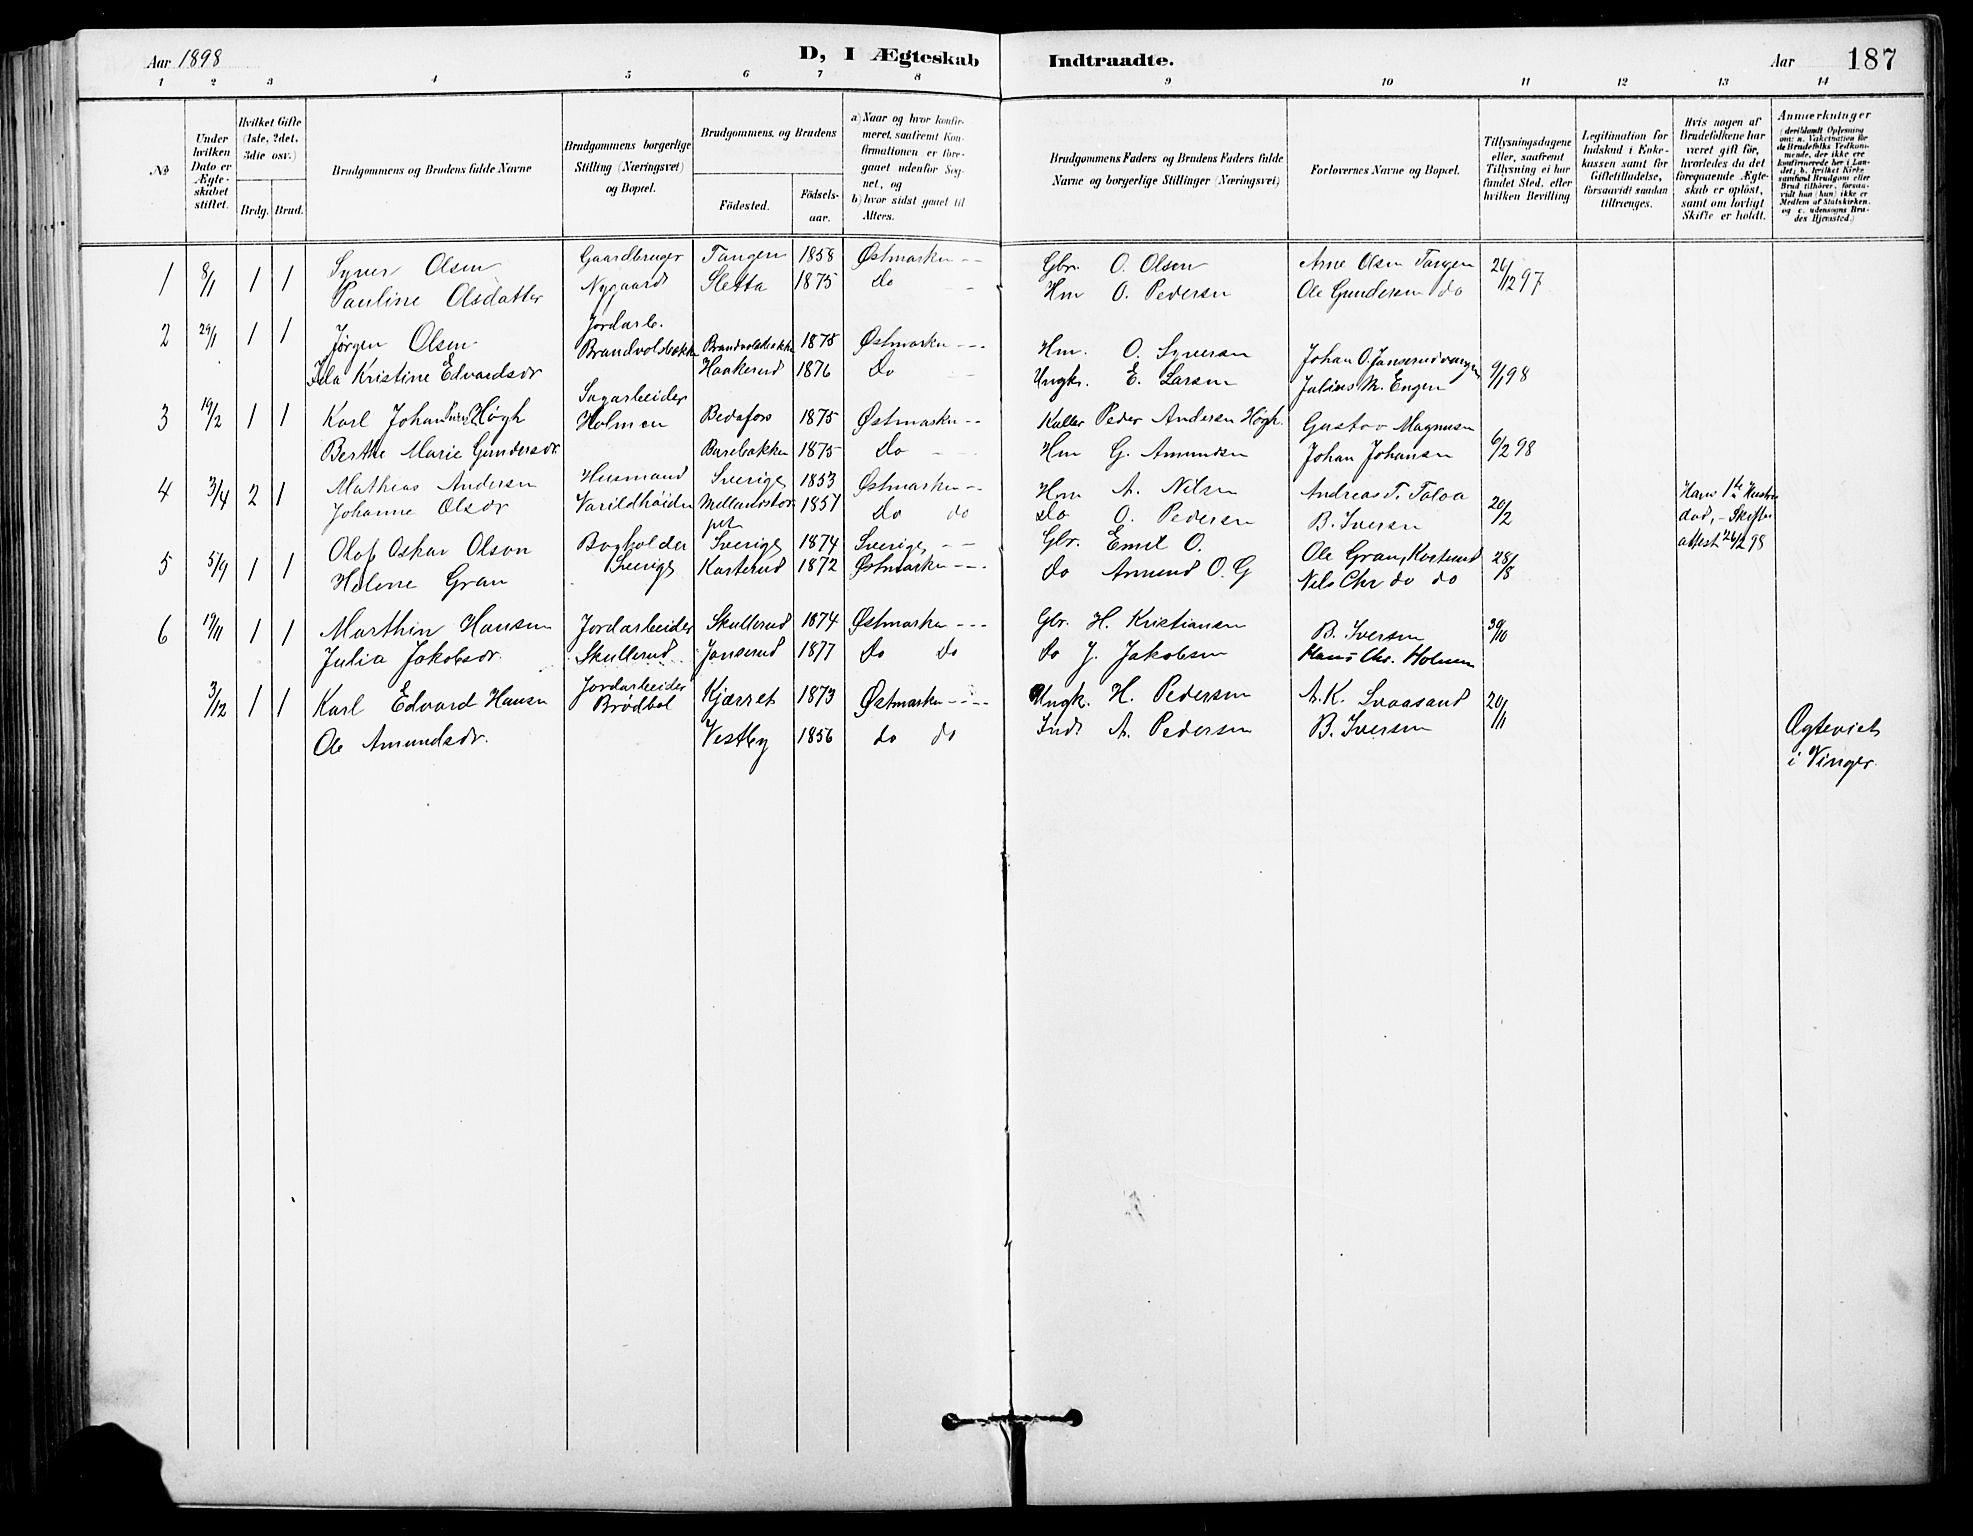 Aar 1898 D, I Ægteskab Indtraadte. Aar 187
1 2 3 4 5 6 7 8 9 10 11 12 13 14
No
Under hvilken Dato er Ægteskabet stiftet.
Hvilket Gifte (1ste, 2det, 3die osv.)
Brdg. Brud.
Brudgommens og Brudens fulde Navne
Brudgommens borgerlige Stilling (Næringsvei) og Bopæl.
Brudgommens og Brudens
Fødested. Fødselsaar.
a) Naar og hvor konfirmeret, saafremt Konfirmationen er foregaaet udenfor Sognet, og b) hvor sidst gaaet til Alters.
Brudgommens Faders og Brudens Faders fulde Navne og borgerlige Stillinger (Næringsvei)
Forlovernes Navne og Bopæl.
Tillysningsdagene eller, saafremt Tillysning ei har fundet Sted, efter hvilken Bevilling
Legitimation for Indskud i Enkekassen samt for Giftetilladelse, forsaavidt saadan tiltrænges.
Hvis nogen af Brudefolkene har været gift før, hvorledes da det foregaaende Ægteskab er opløst, samt om lovligt Skifte er holdt.
Anmærkninger
(deriblandt Oplysning om: a. Vakcination for de Brudefolks Vedkommende, der ikke ere konfirmerede her i Landet; b. hvilket Kirkesamfund Brudgom eller Brud tilhører, forsaavidt han (hun) ikke er Medlem af Statskirken, og c. udensogns Brudes Hjemsted.)
1 8/1 1 1 Syver Olsen Gaardbruger Tangen 1858 Østmarken -- Gbr. O. Olsen Arne Olsen Tangen 26/12 97
Pauline Olsdatter Nygaard Sletta 1875 Do - Hm O. Pedersen Ole Gundersen do
2 29/1 1 1 Jørgen Olsen Jordarb. Brandvolsbakken Brandvolsbakken 1875 Østmarken --- Hm. O. Syversen Johan O. Janserudvangen 9/1 98
Ida Kristine Edvardsdr Haakerud 1876 Do - Ungkr. E. Larsen Julius M. Engen
3 19/2 1 1 Karl Johan Høgh Sagarbeider Holmen Bedafors 1875 Østmarken -- Kuller Peder Andersen Høgh. Gustav Magnusen 6/2 98
Berthe Marie Gundersdr. Barebakken 1875 Do - Hm G. Amundsen Johan Johansen
4 3/4 2 1 Mathias Andersen Husmand Sverige 1853 Østmarken -- Hm A. Nilsen Andreas T. 20/2 Hans 1ste Hustru
Johanne Olsdr Varildhøiden 1857 Do do Do O. Pedersen B. Iversen død, - Skifte
attest 26/2 98
5 5/9 1 1 Olof Oskar Olson Bogholder Sverige 1874 Sverige -- Gbr. Emil O. Ole Gran, Kasterud 28/8
Helene Gran Sverige Kasterud 1872 Østmarken --- do Amund O. G Nils Chr do do
6 19/11 1 1 Marthin Hansen Jordarbeider Skullerud 1874 Østmarken --- Gbr. H. Kristiansen B. Iversen 30/10
Julia Jakobsdr. Skullerud Janserud 1877 Do Do do J. Jakobsen Hans Chr. Holmen
3/12 1 1 Karl Edvard Hansen Jordarbeider Brødbøl Kjærret 1873 Østmarken ---- Ungk. H. Pedersen A. K. Svaasand 20/11
Ole Amundsdr. Vestby 1856 do do Indr A. Pedersen B. Iversen Ægteviet
i Vinger.